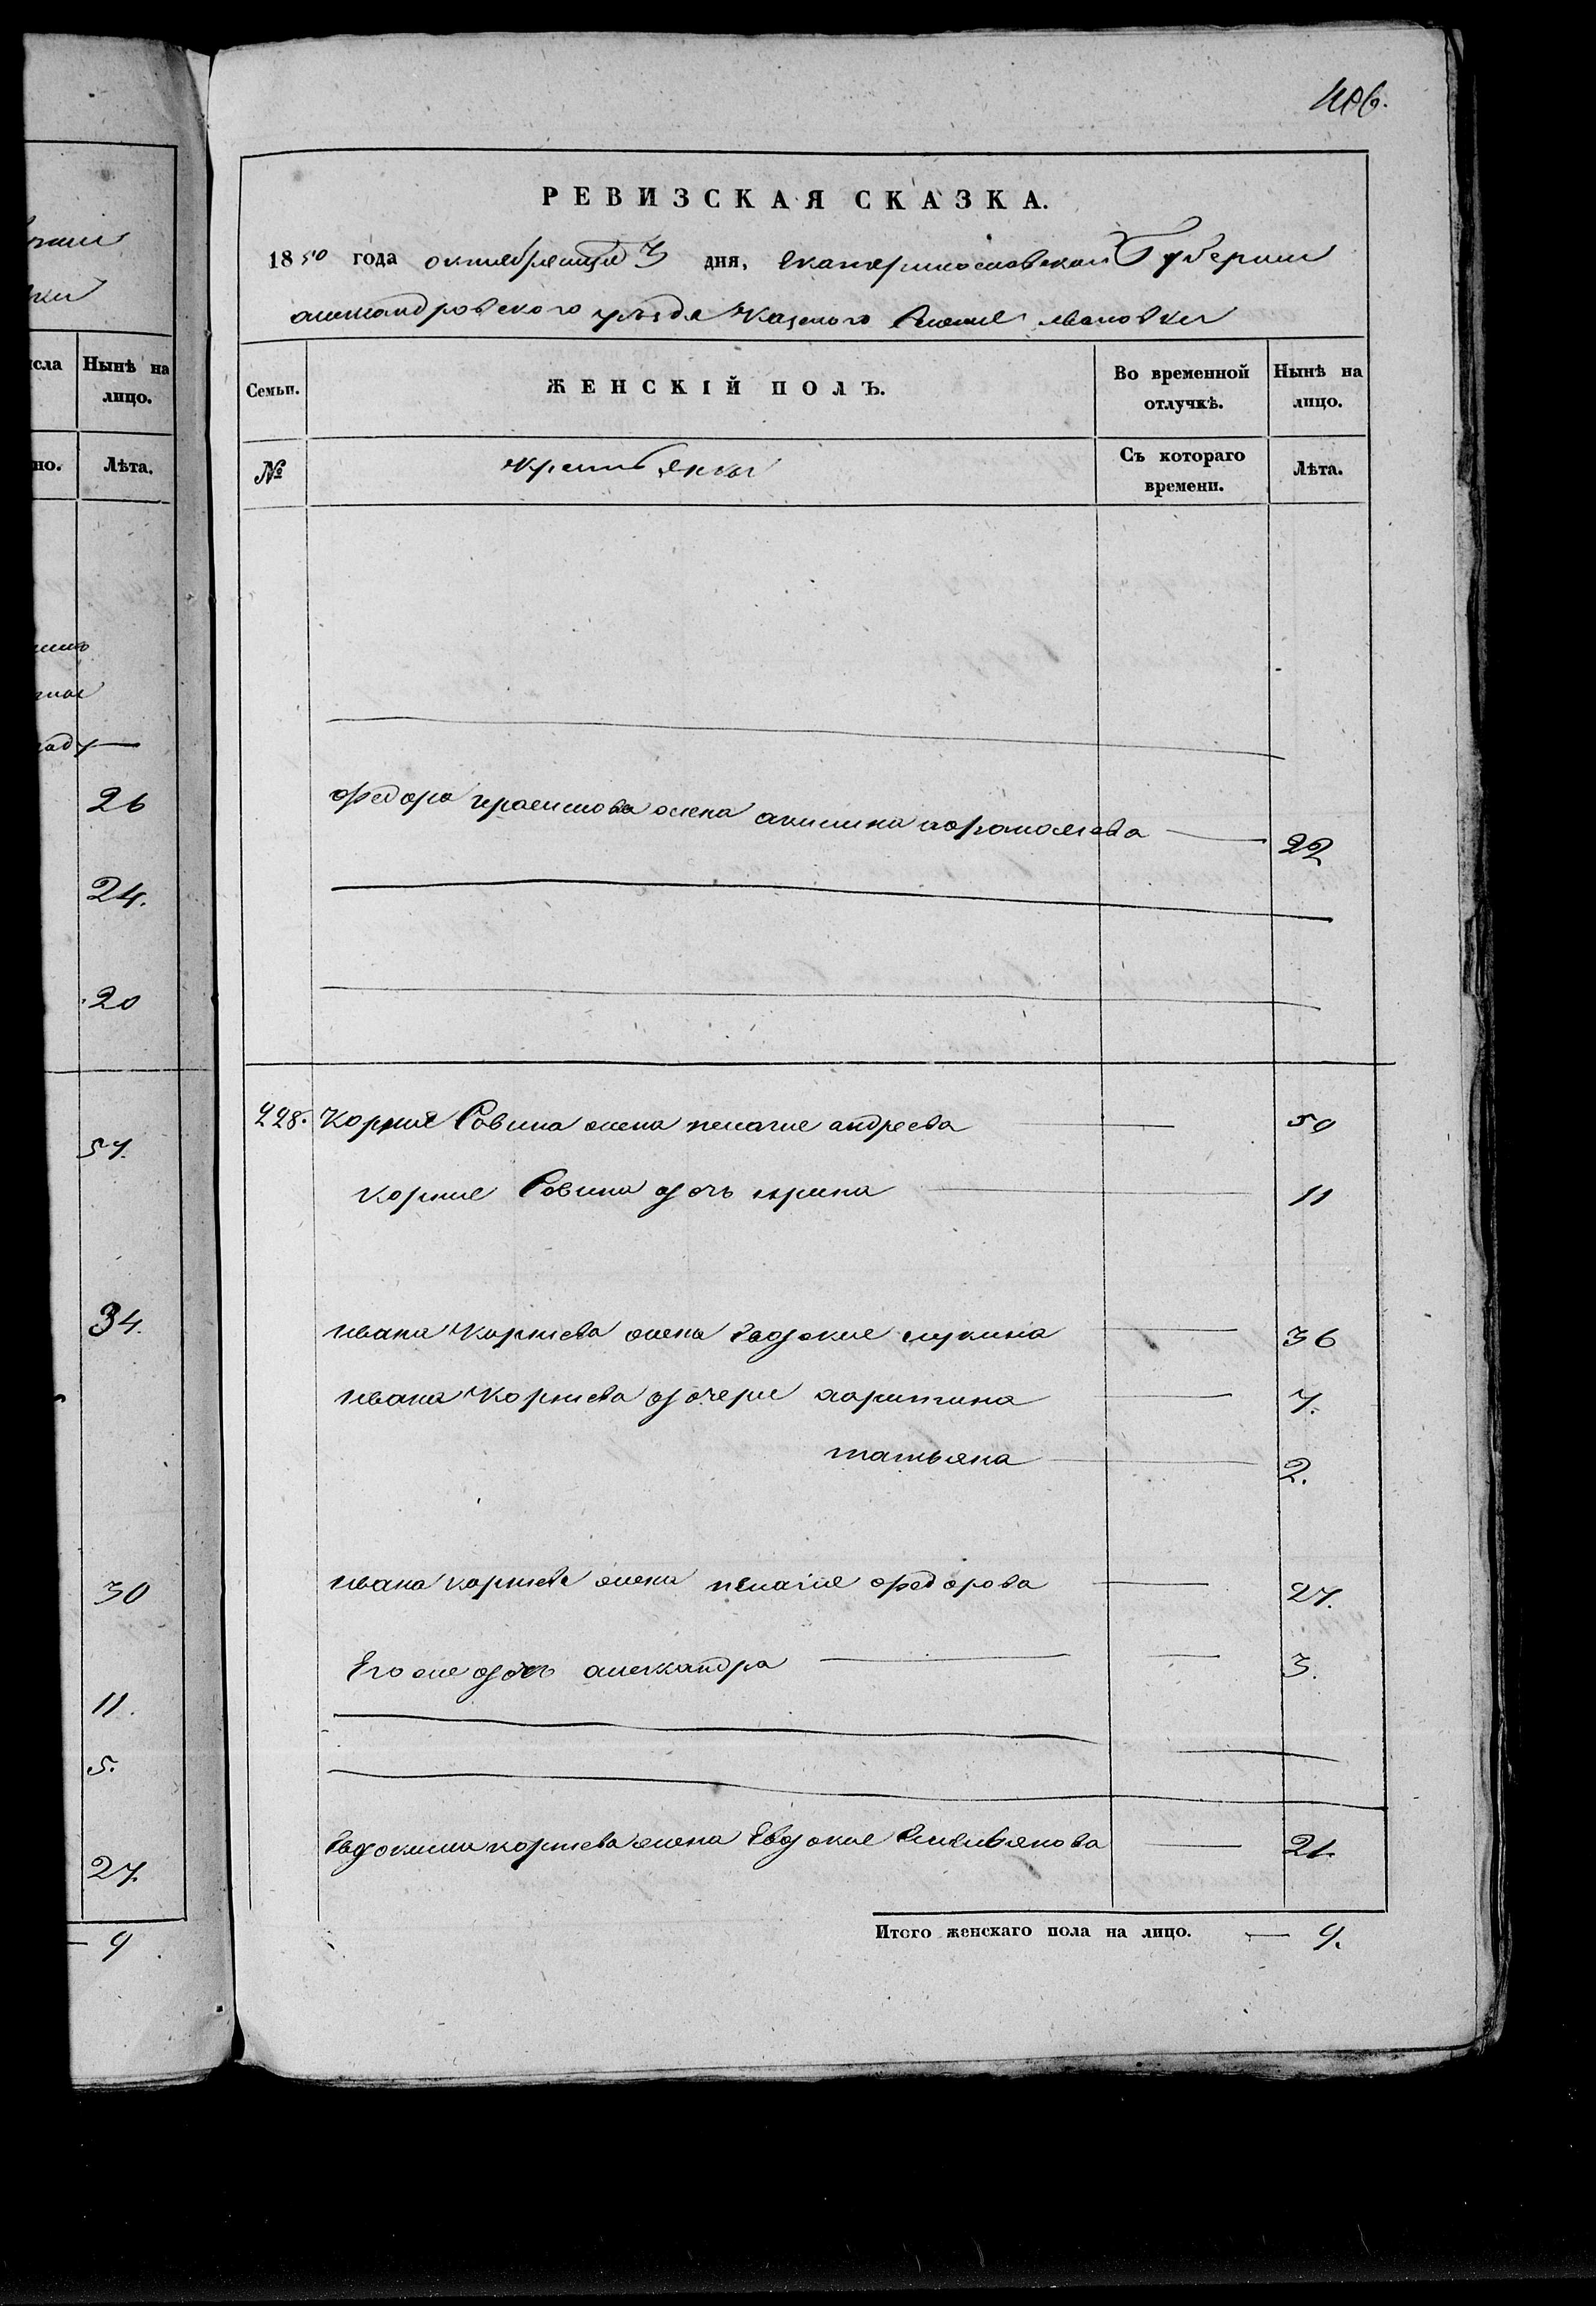 406.
РЕВИЗСКАЯ СКАЗКА.
1850 года октября месяца 3 дня, екатеринославской Губернии
александровского уезда казеного селения ивановки
Семьи.
ЖЕНСКІЙ ПОЛЪ.
Во временной отлучкѣ.
Нынѣ на лицо.
№
крестьянки
Съ котораго времени.
Лѣта.
федора герасимова жена акилина 22
228. Корния Савина жена пелагия андреева 50
корния Савина дочь ирина 11
ивана Корниева жена Евдокия лукина 36
ивана Корниева дочери 7.
татьяна 2.
ивана корниева жена пелагия федорова 27.
Его же дочь александра 3.
Евдокима корниева жена Евдокия Емельянова 21.
Итого женскаго пола на лицо. — 9.
Нынѣ на лицо.
Лѣта.
26
24.
20
57.
34.
30
11.
5.
27.
9